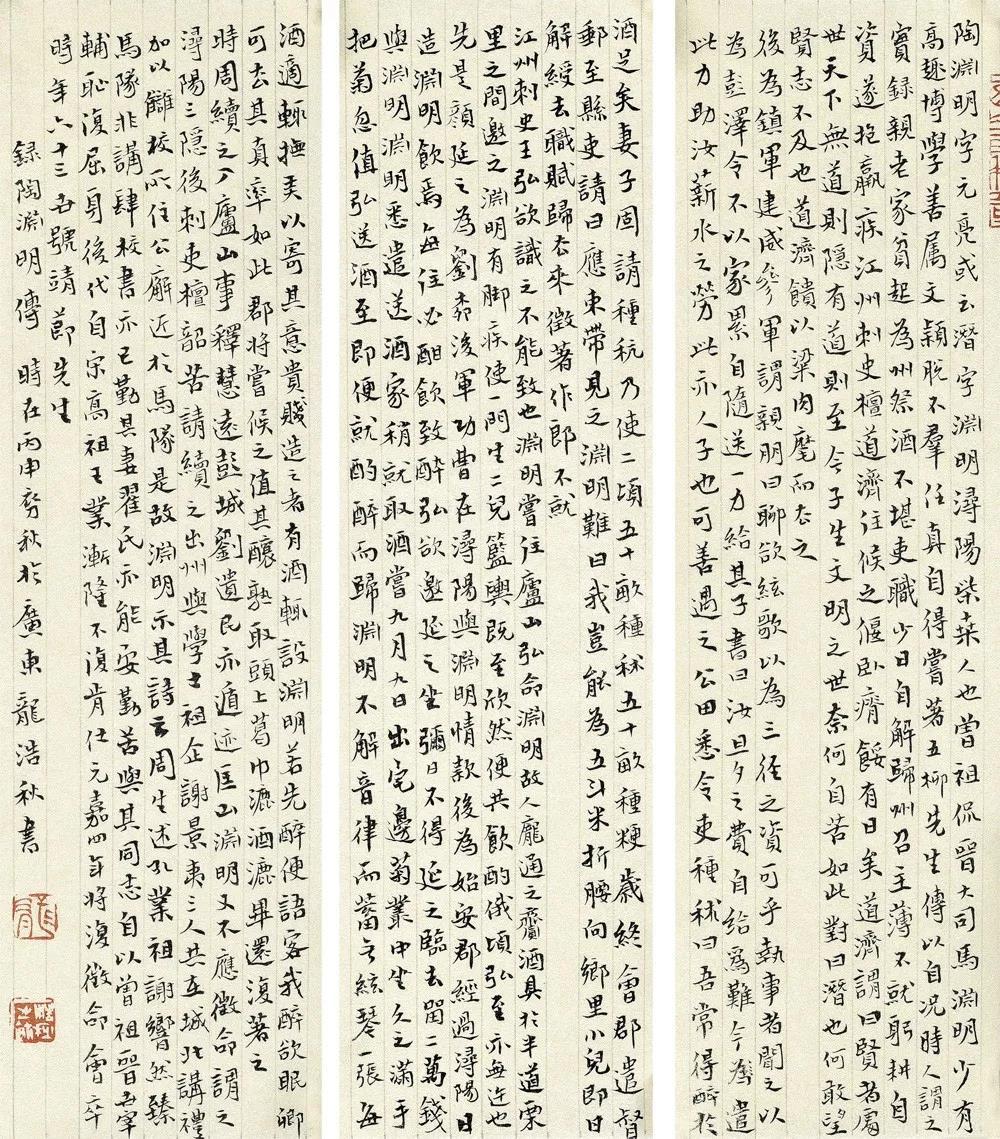 陶淵明字元亮或云潛字淵明潯陽柴桑人也曾祖侃晉大司馬淵明少有
高趣博學善属文穎脫不羣任真自得嘗著五柳先生傳以自况時人謂之
實録親老家貧起為州祭酒不堪吏職少日自解歸州召主薄不就躬耕自
資遂抱羸疾江州刺史檀道濟往候之偃卧瘠餒有日矣道濟謂曰賢者處
世天下無道則隱有道則至今子生文明之世奈何自苦如此對曰潛也何敢望
賢志不及也道濟饋以粱肉麾而去之
後為鎮軍建威參軍謂親朋曰聊欲絃歌以為三徑之資可乎執事者聞之以
為彭澤令不以家累自隨送一力給其子書曰汝旦夕之費自給為難今遣
此力助汝薪水之勞此亦人子也可善遇之公田悉令吏種秫曰吾常得醉於
酒足矣妻子固請種秔乃使二頃五十畝種秫五十畝種粳歲終會郡遣督
郵至縣吏請曰應束帶見之淵明難曰我豈能為五斗米折腰向鄉里小兒即日
解綬去職賦歸去來徵著作郎不就
江州刺史王弘欲識之不能致也淵明嘗往廬山弘命淵明故人龐通之齎酒具於半道栗
里之間邀之淵明有脚疾使一門生二兒籃輿既至欣然便共飲酌俄頃弘至亦無迕也
先是顏延之為劉柳後軍功曹在潯陽與淵明情款後為始安郡經過潯陽日
造淵明飲焉每往必酣飲致醉弘欲邀延之坐彌日不得延之臨去留二萬錢
與淵明淵明悉遣送酒家稍就取酒嘗九月九日出宅邊菊叢中坐久之滿手
把菊忽值弘送酒至即便就酌醉而歸淵明不解音律而蓄無絃琴一張每
酒適輒撫弄以寄其意貴賤造之者有酒輒設淵明若先醉便語客我醉欲眠卿
可去其真率如此郡將嘗候之值其釀熟取頭上葛巾漉酒漉畢還復著之
時周續之入廬山事釋慧遠彭城劉遺民亦遁迹匡山淵明又不應徵命謂之
潯陽三隱後刺吏檀韶苦請續之出州與學士祖企謝景夷三人共在城北講禮
加以讎校所住公廨近於馬隊是故淵明示其詩云周生述孔業祖謝響然臻
馬隊非講肆校書亦已勤其妻翟氏亦能安勤苦與其同志自以曾祖晉世宰
輔恥復屈身後代自宋高祖王業漸隆不復肯仕元嘉四年將復徵命會卒
時年六十三世號靖節先生
録陶淵明傳 時在丙申秀秋於廣東龍浩秋書